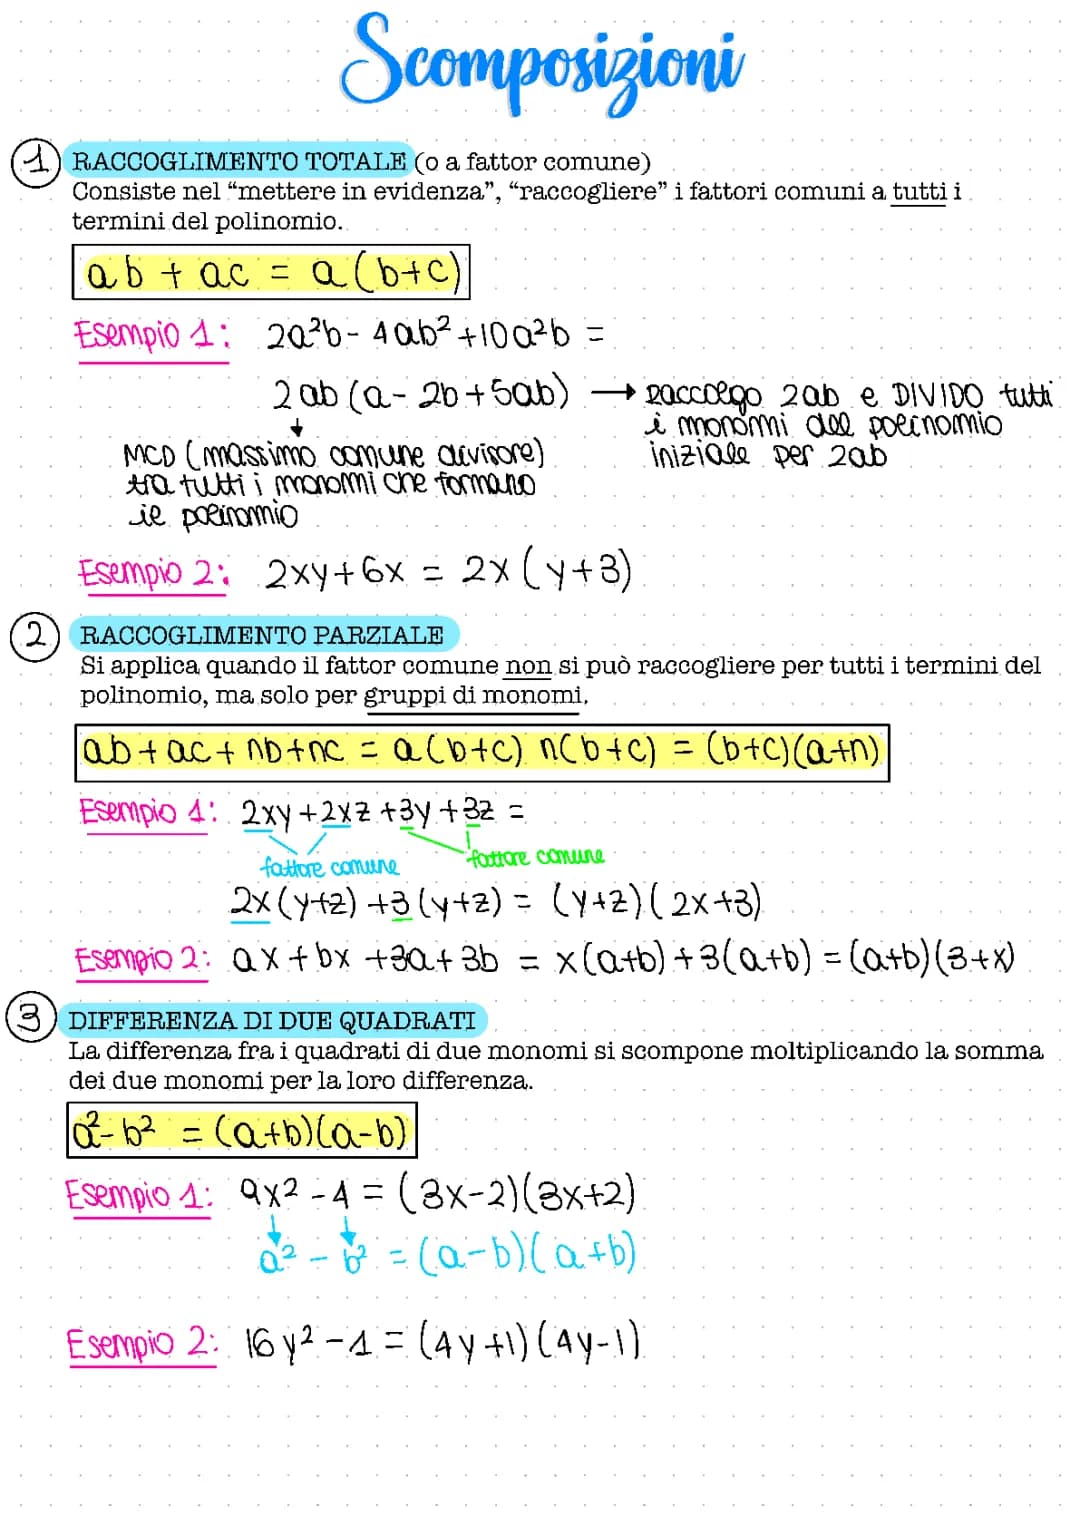 Scomposizioni
1 RACCOGLIMENTO TOTALE (o a fattor comune)
Consiste nel “mettere in evidenza”, “raccogliere” i fattori comuni a tutti i
termini del polinomio.
ab + ac = a(b+c)
Esempio 1: 2a²b - 4ab² + 10a²b =
2ab (a - 2b + 5ab) → raccolgo 2ab e DIVIDO tutti
i monomi del polinomio
iniziale per 2ab
↓
MCD (massimo comune divisore)
tra tutti i monomi che formano
il polinomio
Esempio 2: 2xy + 6x = 2x (y+3)
2 RACCOGLIMENTO PARZIALE
Si applica quando il fattor comune non si può raccogliere per tutti i termini del
polinomio, ma solo per gruppi di monomi.
ab + ac + nb + nc = a(b+c) n(b+c) = (b+c)(a+n)
Esempio 1: 2xy + 2xz + 3y + 3z =
fattore comune fattore comune
2x(y+z) + 3(y+z) = (y+z)(2x+3)
Esempio 2: ax + bx + 3a + 3b = x(a+b) + 3(a+b) = (a+b)(3+x)
3 DIFFERENZA DI DUE QUADRATI
La differenza fra i quadrati di due monomi si scompone moltiplicando la somma
dei due monomi per la loro differenza.
a² - b² = (a+b)(a-b)
Esempio 1: 9x² - 4 = (3x-2)(3x+2)
↓ ↓
a² - b² = (a-b)(a+b)
Esempio 2: 16y² - 1 = (4y+1)(4y-1)